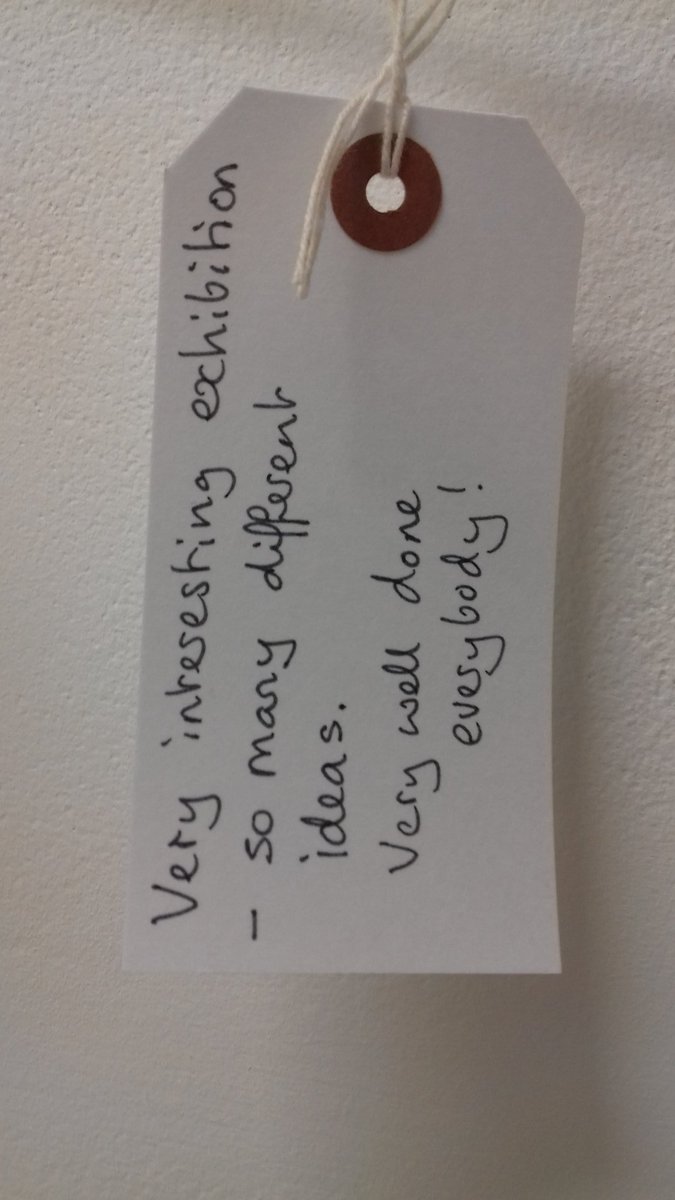 Very interesting exhibition
- so many different
ideas.
Very well done
everybody!